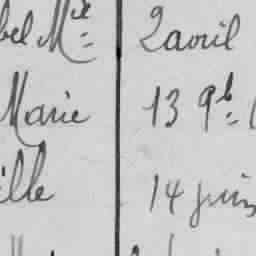 bel Mel 2 avril
Marie 13 9b
ille 14 juin